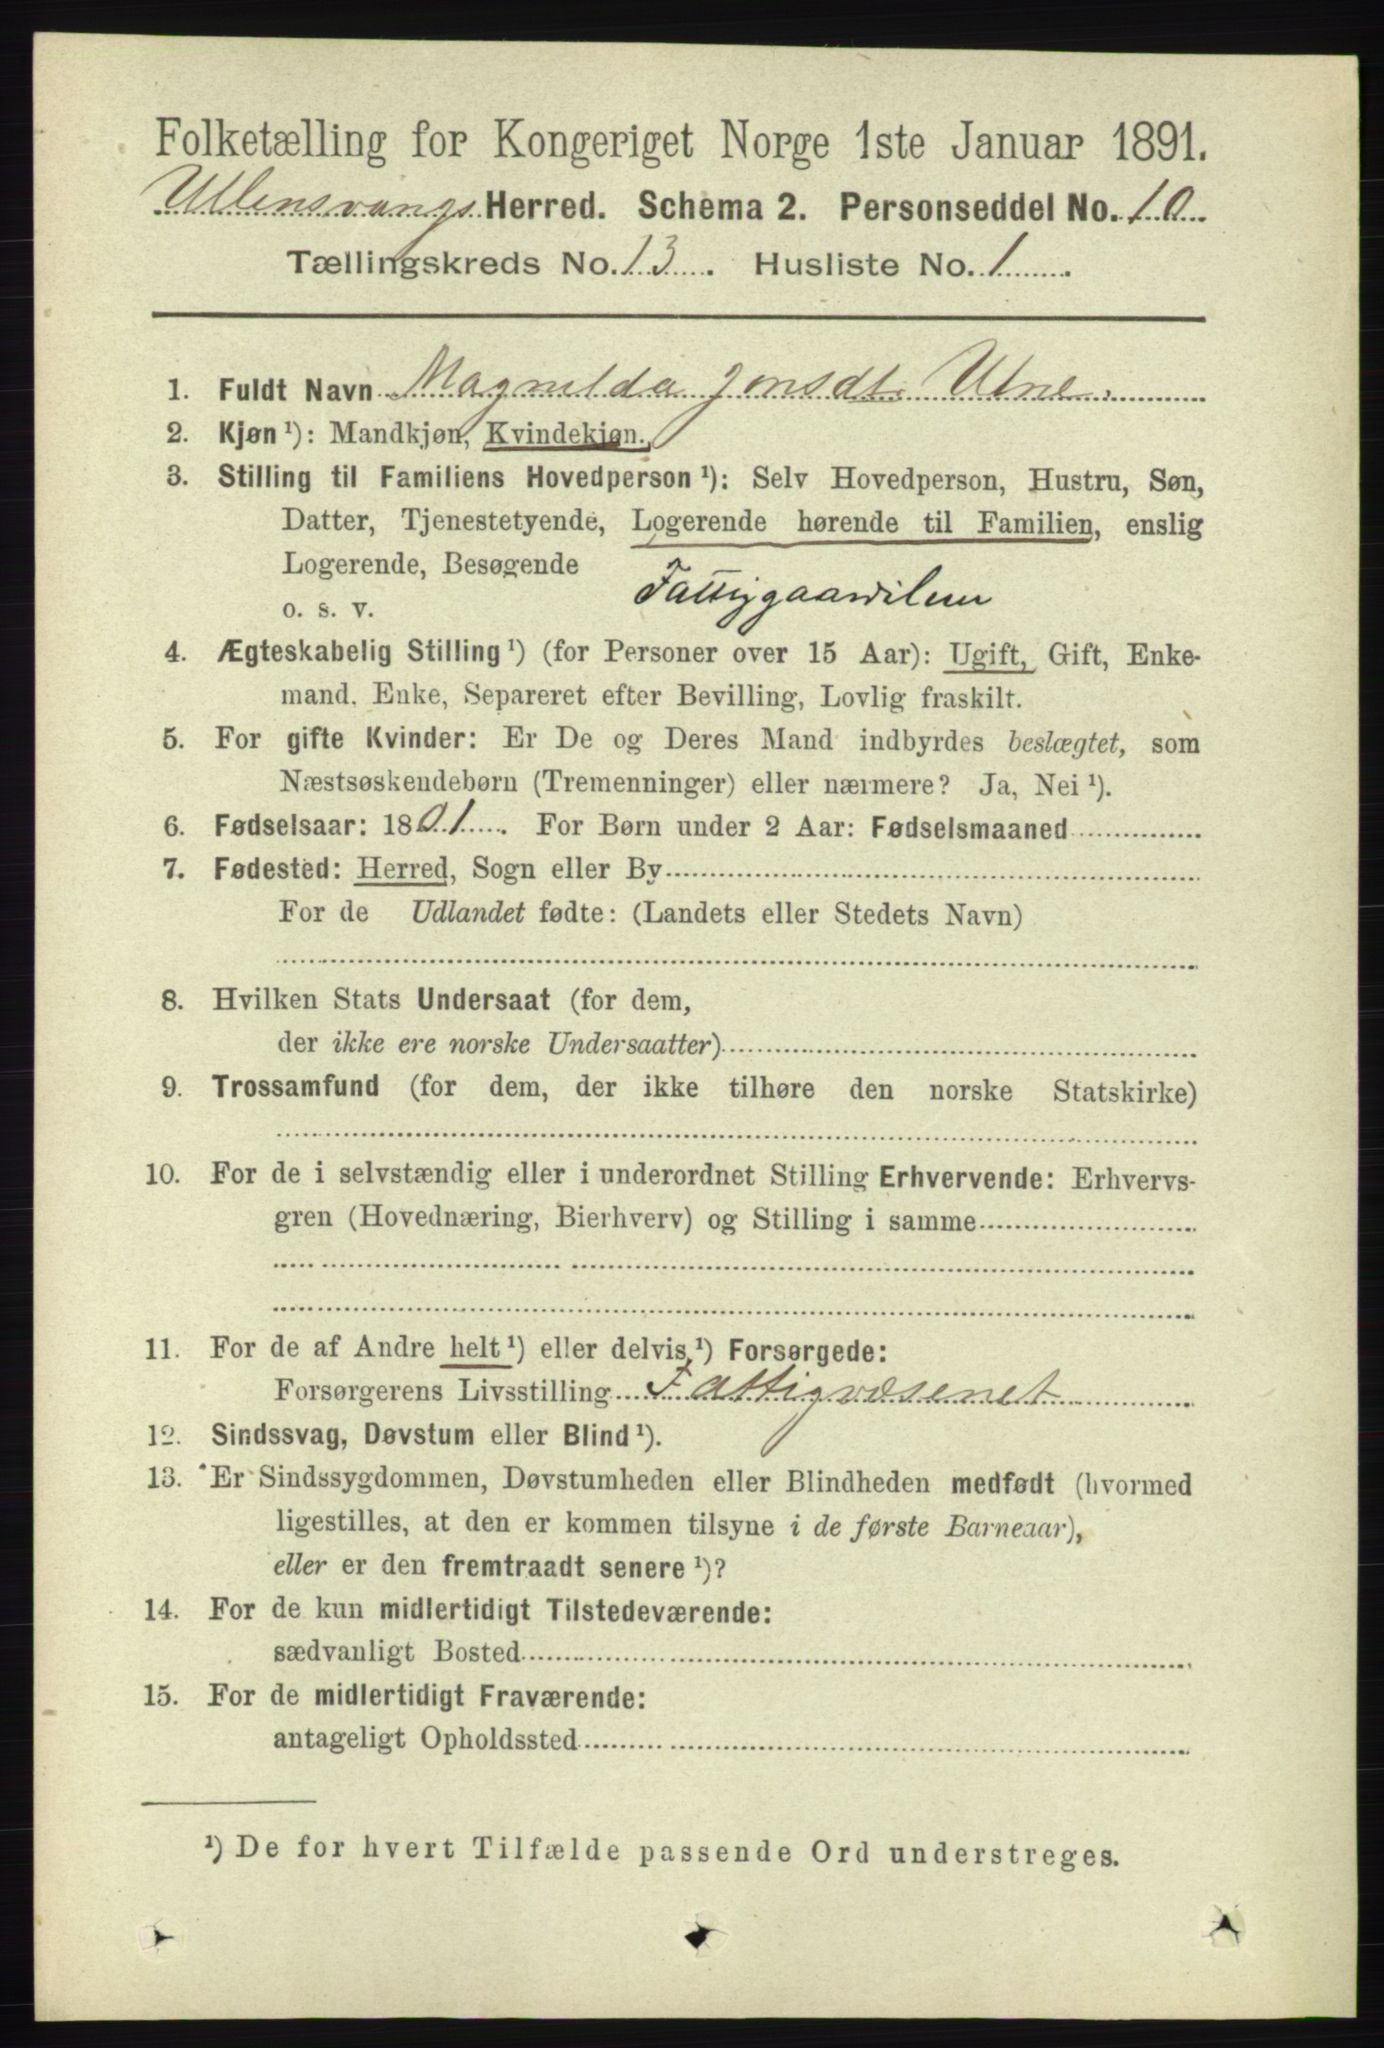 Folketælling for Kongeriget Norge 1ste Januar 1891.
Ullensvangs Herred. Schema 2. Personseddel No. 10
Tællingskreds No. 13. Husliste No. 1.
1. Fuldt Navn Magnilda Jonsdt. Utne.
2. Kjøn¹): Mandkjøn, Kvindekjøn.
3. Stilling til Familiens Hovedperson¹): Selv Hovedperson, Hustru, Søn,
Datter, Tjenestetyende, Logerende hørende til Familien, enslig
Logerende, Besøgende
o. s. v. Fattiggaardslem
4. Ægteskabelig Stilling¹) (for Personer over 15 Aar): Ugift, Gift, Enke-
mand, Enke, Separeret efter Bevilling, Lovlig fraskilt.
5. For gifte Kvinder: Er De og Deres Mand indbyrdes beslægtet, som
Næstsøskendebørn (Tremenninger) eller nærmere? Ja, Nei¹).
6. Fødselsaar: 1801. For Børn under 2 Aar: Fødselsmaaned
7. Fødested: Herred, Sogn eller By
For de Udlandet fødte: (Landets eller Stedets Navn)
8. Hvilken Stats Undersaat (for dem,
der ikke ere norske Undersaatter)
9. Trossamfund (for dem, der ikke tilhøre den norske Statskirke)
10. For de i selvstændig eller i underordnet Stilling Erhvervende: Erhvervs-
gren (Hovednæring, Bierhverv) og Stilling i samme
11. For de af Andre helt¹) eller delvis¹) Forsørgede:
Forsørgerens Livsstilling Fattigvæsenet
12. Sindssvag, Døvstum eller Blind¹).
13. Er Sindssygdommen, Døvstumheden eller Blindheden medfødt (hvormed
ligestilles, at den er kommen tilsyne i de første Barneaar),
eller er den fremtraadt senere¹)?
14. For de kun midlertidigt Tilstedeværende:
sædvanligt Bosted
15. For de midlertidigt Fraværende:
antageligt Opholdssted
¹) De for hvert Tilfælde passende Ord understreges.